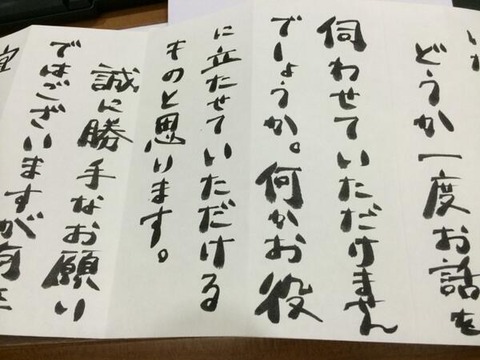 どうか一度お話を
伺わせていただけません
でしょうか。何かお役
に立たせていただける
ものと思ります。
誠に勝手なお願い
ではございますが何と